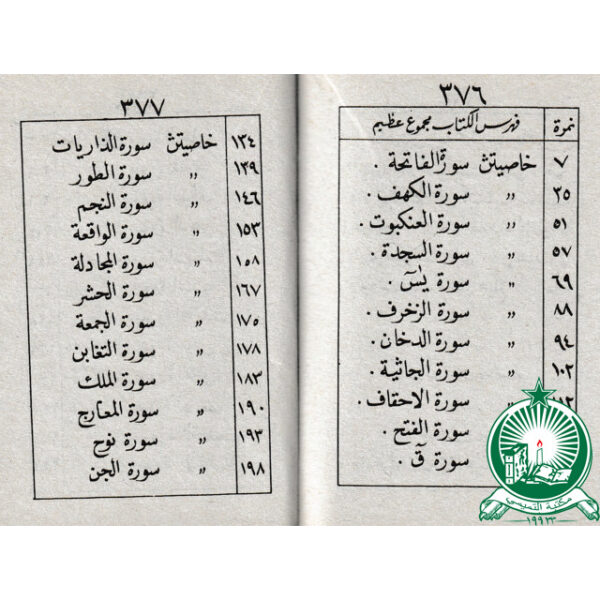 ٣٧٦
نمرة فهرس الكتاب مجموع عظيم
٧ خاصيتن سورة الفاتحة .
٢٥ " سورة الكهف .
٥١ " سورة العنكبوت .
٥٧ " سورة السجدة .
٦٩ " سورة يٰسٓ .
٨٨ " سورة الزخرف .
٩٤ " سورة الدخان .
١٠٢ " سورة الجاثية .
١١٢ " سورة الاحقاف .
" سورة الفتح .
" سورة قٓ .
٣٧٧
١٣٤ خاصيتن سورة الذاريات
١٣٩ " سورة الطور
١٤٦ " سورة النجم
١٥٣ " سورة الواقعة
١٥٨ " سورة المجادلة
١٦٧ " سورة الحشر
١٧٥ " سورة الجمعة
١٧٨ " سورة التغابن
١٨٣ " سورة الملك
١٩٠ " سورة المعارج
١٩٣ " سورة نوح
١٩٨ " سورة الجن
مكتبة التميمي